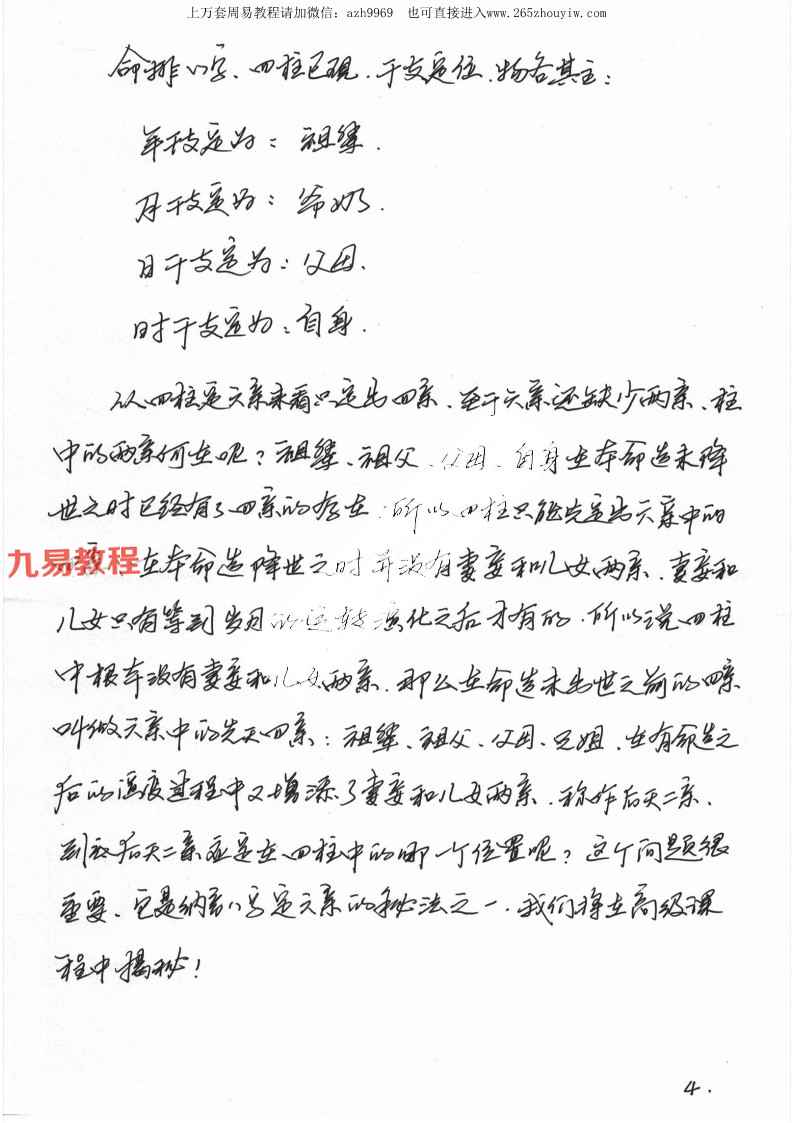 上万套周易教程请加微信：azh9969 也可直接进入www.265zhouyiw.com
命排八字、四柱已现，干支定位、物各其主：
年干支定为：祖辈．
月干支定为：爷奶．
日干支定为：父母．
时干支定为：自身．
从四柱定六亲来看只定出四亲、至于六亲还缺少两亲、柱
中的两亲何在呢？祖辈、祖父、父母、自身在本命造未降
世之时已经有了四亲的存在，所以四柱只能先定出六亲中的
九易教程
在本命造降世之时并没有妻妾和儿女两亲、妻妾和
儿女只有等到岁月的运转演化之后才有的．所以说四柱
中根本没有妻妾和儿女两亲．那么在命造未出世之前的四亲
叫做六亲中的先天四亲：祖辈、祖父、父母、兄姐．在有命造之
后的过程中又增添了妻妾和儿女两亲．称作后天二亲．
到底后天二亲应定在四柱中的哪一个位置呢？这个问题很
重要、它是纳音八字定六亲的秘法之一．我们将在高级课
程中揭秘！
4．